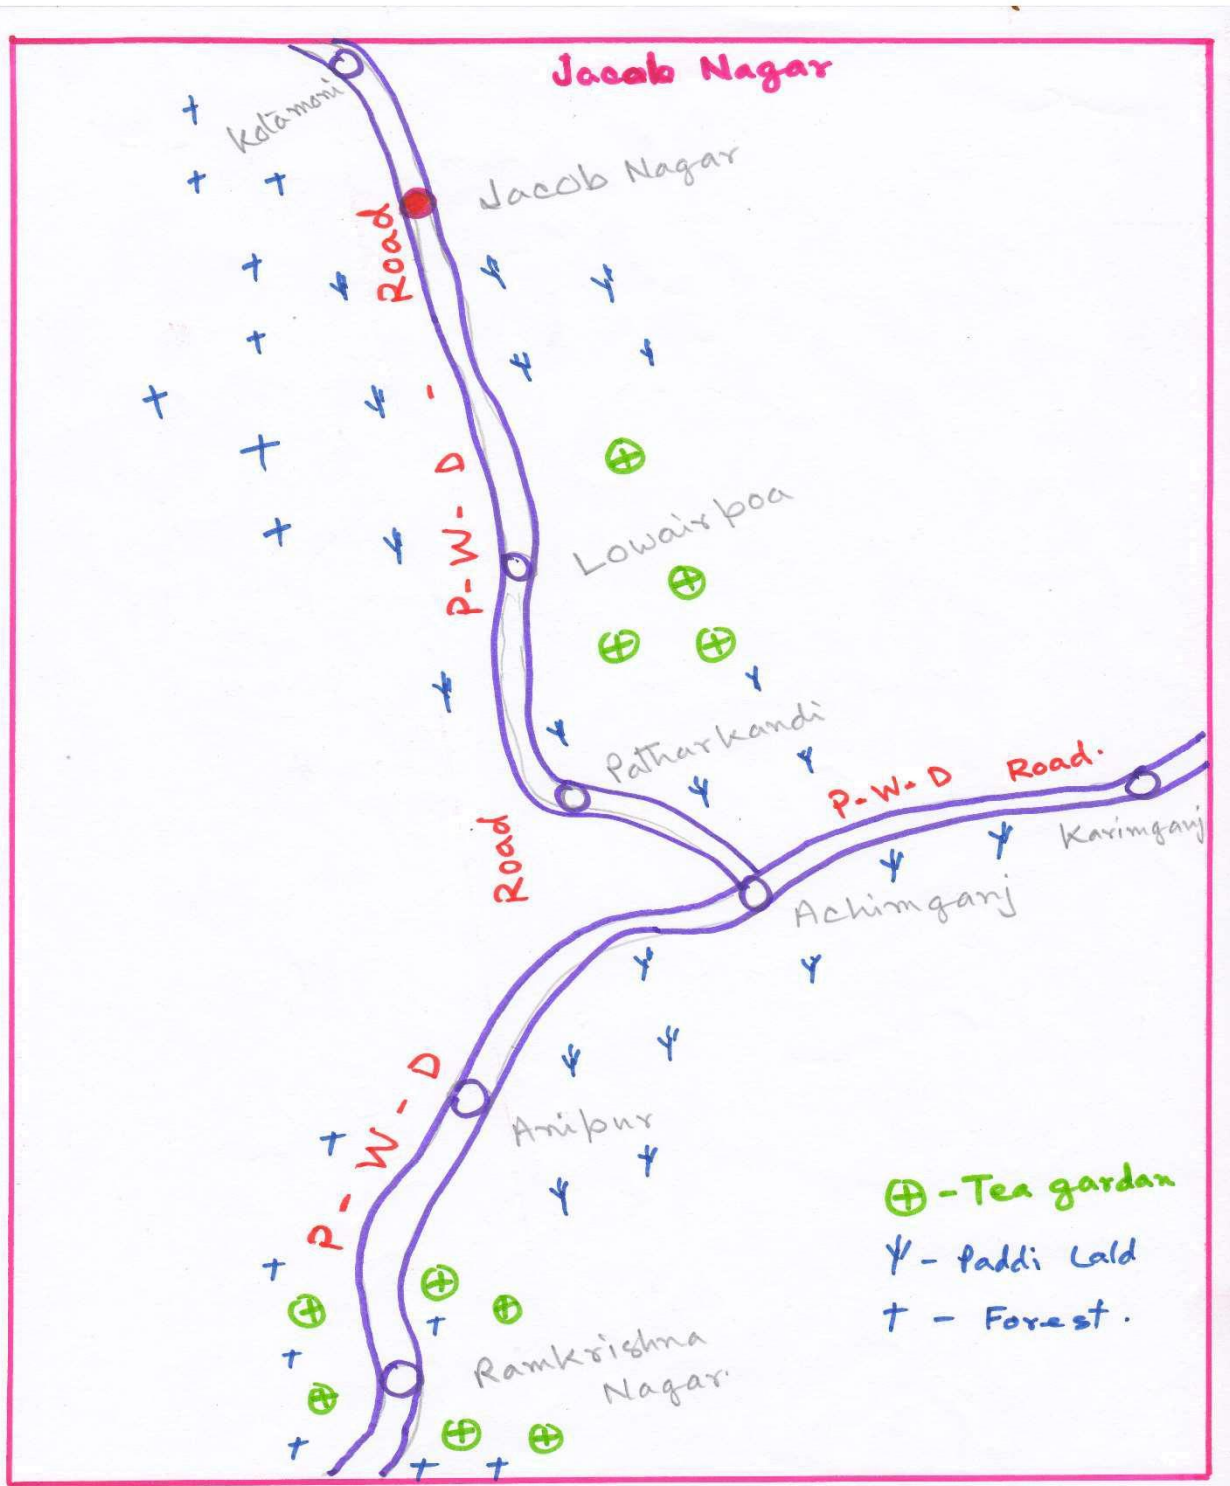 Jacob Nagar
Kotamoni
Jacob Nagar
P-W-D - Road
Lowairpoa
Patharkandi
P-W-D Road.
Karimganj
Road
Achimganj
P-W-D
Anipur
Ramkrishna
Nagar.
⊕ - Tea gardan
Ψ - Paddi Lald
† - Forest.